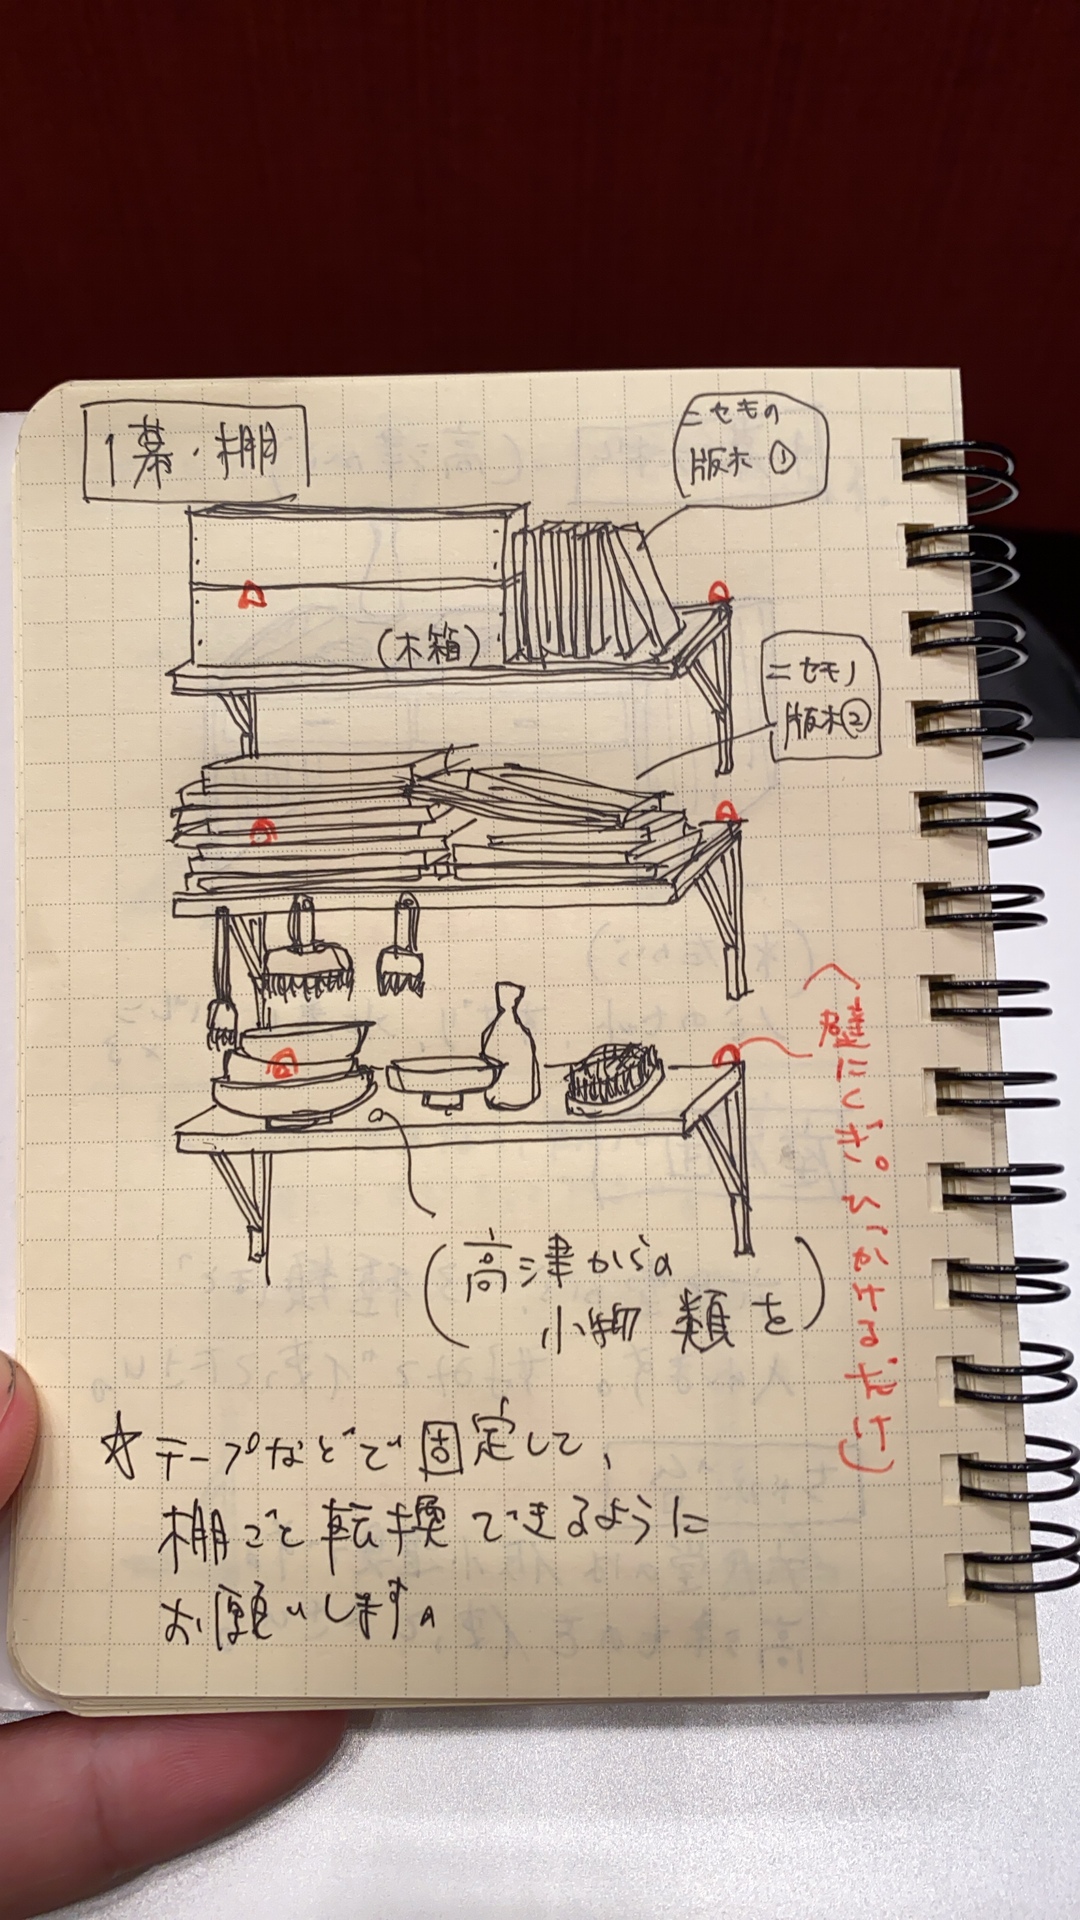 1幕・棚
ニセもの
版木①
(木箱)
ニセモノ
版木②
(壁にくぎ。ひっかけるだけ)
(高津からの
小物類を)
☆テープなどで固定して、
棚ごと転換できるように
お願いします。